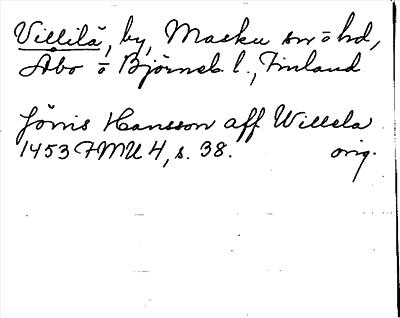 Villilä, by, Masku sn o hd,
Åbo o Björneb. l., Finland
Jönis Hansson aff Willela
1453 FMU 4, s. 38. orig.